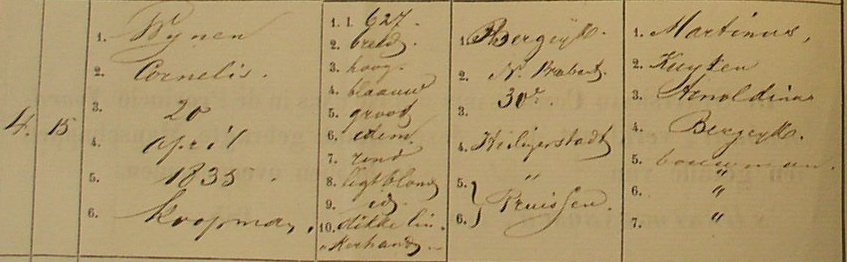 4. 15
1. Wynen
2. Cornelis.
3. 20
4. april
5. 1835
6. koopman.
1. l. 627.
2. breed
3. hoog.
4. blaauw
5. groot
6. idem
7. rond
8. ligtblond
9. id.
10. dikke lin-
kerhand
1. Bergeyk.
2. N. Brabant
3. 30r.
4. Heiligerstadt
5. "
6. Pruissen.
1. Martinus,
2. Kuyten
3. Arnoldina
4. Bergeyk.
5. bouwman.
6. "
7. "